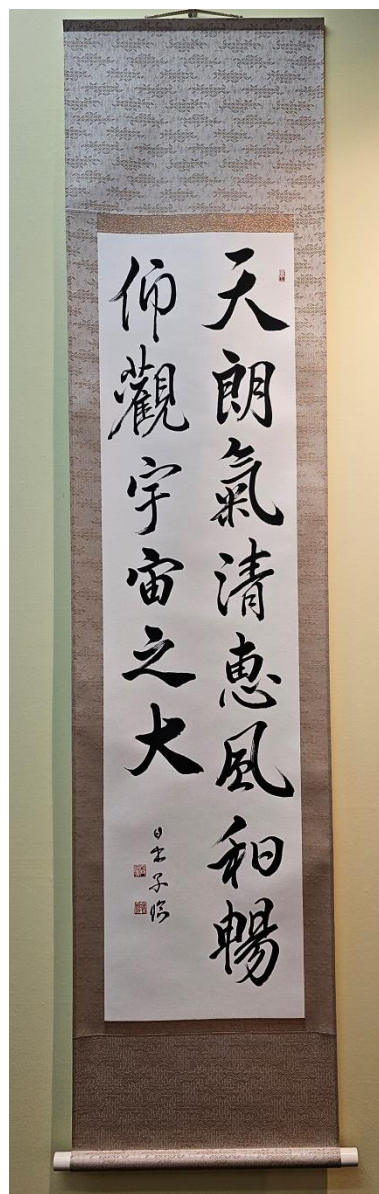 天朗氣清惠風和暢
仰觀宇宙之大
日出子臨